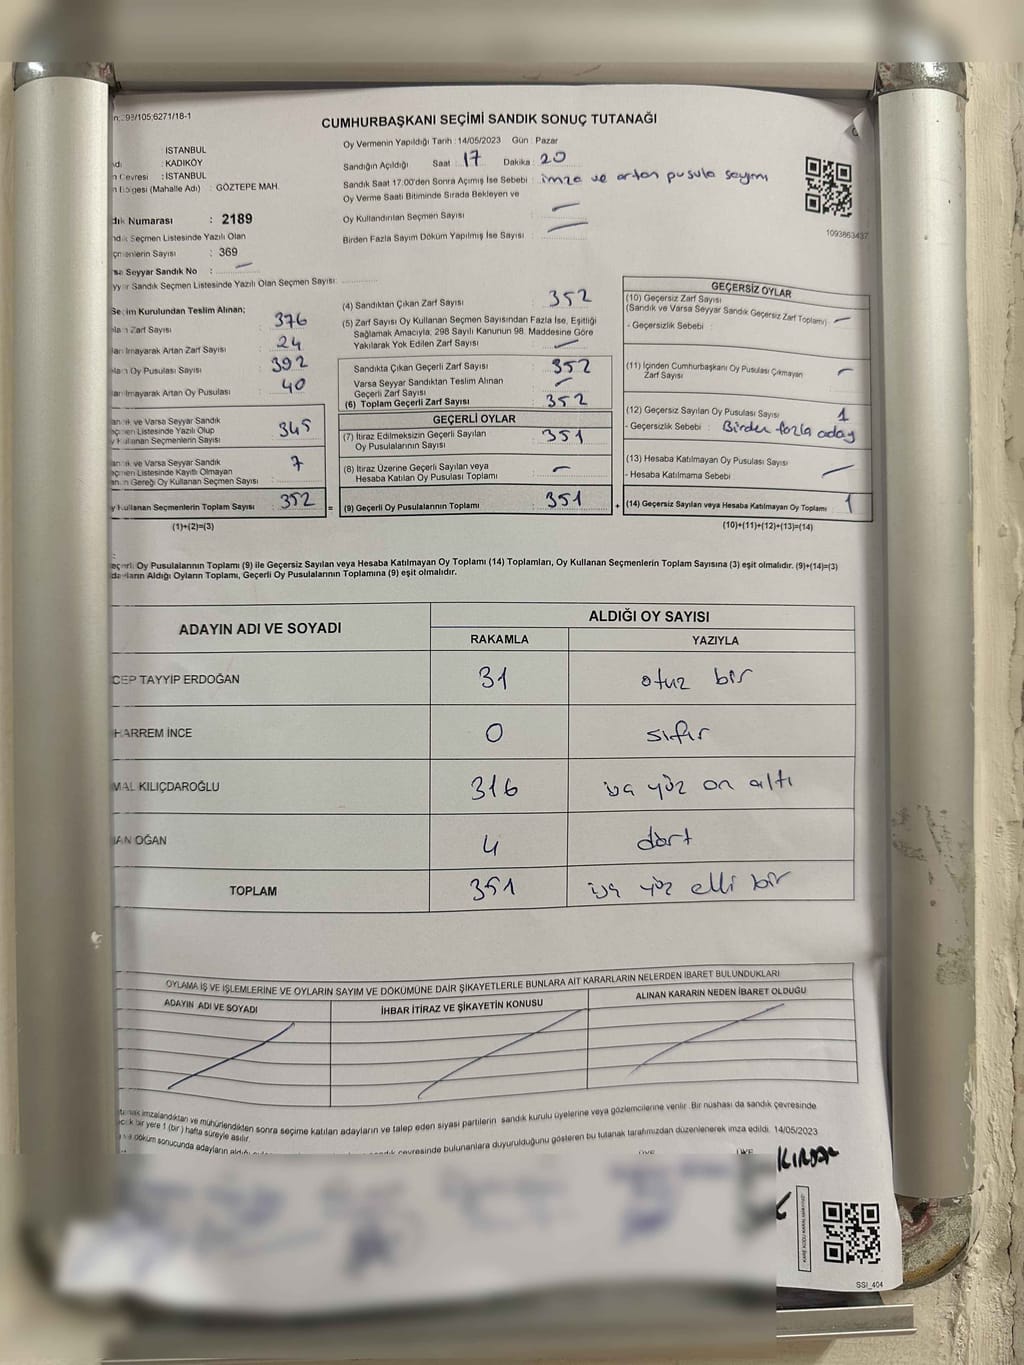 93/105;6271/18-1
CUMHURBAŞKANI SEÇİMİ SANDIK SONUÇ TUTANAĞI
: İSTANBUL
: KADIKÖY
n Çevresi : İSTANBUL
n Bölgesi (Mahalle Adı) : GÖZTEPE MAH.
dık Numarası : 2189
ndık Seçmen Listesinde Yazılı Olan
çmenlerin Sayısı : 369
sa Seyyar Sandık No : —
yyar Sandık Seçmen Listesinde Yazılı Olan Seçmen Sayısı:
Oy Vermenin Yapıldığı Tarih : 14/05/2023 Gün : Pazar
Sandığın Açıldığı Saat : 17 Dakika : 20
Sandık Saat 17:00'den Sonra Açımış İse Sebebi : imza ve artan pusula sayımı
Oy Verme Saati Bitiminde Sırada Bekleyen ve
Oy Kullandırılan Seçmen Sayısı : —
Birden Fazla Sayım Döküm Yapılmış İse Sayısı : —
1093863437
Seçim Kurulundan Teslim Alınan;
lan Zarf Sayısı : 376
lanılmayarak Artan Zarf Sayısı : 24
lan Oy Pusulası Sayısı : 392
lanılmayarak Artan Oy Pusulası : 40
andık ve Varsa Seyyar Sandık
çmen Listesinde Yazılı Olup
y Kullanan Seçmenlerin Sayısı : 345
andık ve Varsa Seyyar Sandık
çmen Listesinde Kayıtlı Olmayan
anun Gereği Oy Kullanan Seçmen Sayısı : 7
y Kullanan Seçmenlerin Toplam Sayısı : 352
(1)+(2)=(3)
(4) Sandıktan Çıkan Zarf Sayısı : 352
(5) Zarf Sayısı Oy Kullanan Seçmen Sayısından Fazla İse, Eşitliği
Sağlamak Amacıyla, 298 Sayılı Kanunun 98. Maddesine Göre
Yakılarak Yok Edilen Zarf Sayısı : —
Sandıkta Çıkan Geçerli Zarf Sayısı : 352
Varsa Seyyar Sandıktan Teslim Alınan
Geçerli Zarf Sayısı : —
(6) Toplam Geçerli Zarf Sayısı : 352
GEÇERLİ OYLAR
(7) İtiraz Edilmeksizin Geçerli Sayılan
Oy Pusulalarının Sayısı : 351
(8) İtiraz Üzerine Geçerli Sayılan veya
Hesaba Katılan Oy Pusulası Toplamı : —
= (9) Geçerli Oy Pusulalarının Toplamı : 351
GEÇERSİZ OYLAR
(10) Geçersiz Zarf Sayısı
(Sandık ve Varsa Seyyar Sandık Geçersiz Zarf Toplamı) —
- Geçersizlik Sebebi :
(11) İçinden Cumhurbaşkanı Oy Pusulası Çıkmayan
Zarf Sayısı —
(12) Geçersiz Sayılan Oy Pusulası Sayısı : 1
- Geçersizlik Sebebi : Birden fazla aday
(13) Hesaba Katılmayan Oy Pusulası Sayısı : —
- Hesaba Katılmama Sebebi :
+ (14) Geçersiz Sayılan veya Hesaba Katılmayan Oy Toplamı : 1
(10)+(11)+(12)+(13)=(14)
eçerli Oy Pusulalarının Toplamı (9) ile Geçersiz Sayılan veya Hesaba Katılmayan Oy Toplamı (14) Toplamları, Oy Kullanan Seçmenlerin Toplam Sayısına (3) eşit olmalıdır. (9)+(14)=(3)
dayların Aldığı Oyların Toplamı, Geçerli Oy Pusulalarının Toplamına (9) eşit olmalıdır.
ADAYIN ADI VE SOYADI ALDIĞI OY SAYISI
RAKAMLA YAZIYLA
CEP TAYYİP ERDOĞAN 31 otuz bir
HARREM İNCE 0 sıfır
MAL KILIÇDAROĞLU 316 üç yüz on altı
AN OĞAN 4 dört
TOPLAM 351 üç yüz elli bir
OYLAMA İŞ VE İŞLEMLERİNE VE OYLARIN SAYIM VE DÖKÜMÜNE DAİR ŞİKAYETLERLE BUNLARA AİT KARARLARIN NELERDEN İBARET BULUNDUKLARI
ADAYIN ADI VE SOYADI İHBAR İTİRAZ VE ŞİKAYETİN KONUSU ALINAN KARARIN NEDEN İBARET OLDUĞU
tanak imzalandıktan ve mühürlendikten sonra seçime katılan adayların ve talep eden siyasi partilerin sandık kurulu üyelerine veya gözlemcilerine verilir. Bir nüshası da sandık çevresinde
cek bir yere 1 (bir) hafta süreyle asılır.
döküm sonucunda adayların aldığı sandık çevresinde bulunanlara duyurulduğunu gösteren bu tutanak tarafımızdan düzenlenerek imza edildi. 14/05/2023
SSİ_404